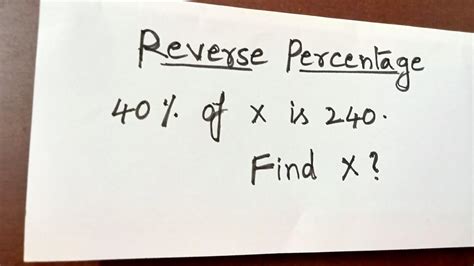 Reverse Percentage
40% of x is 240.
Find x?